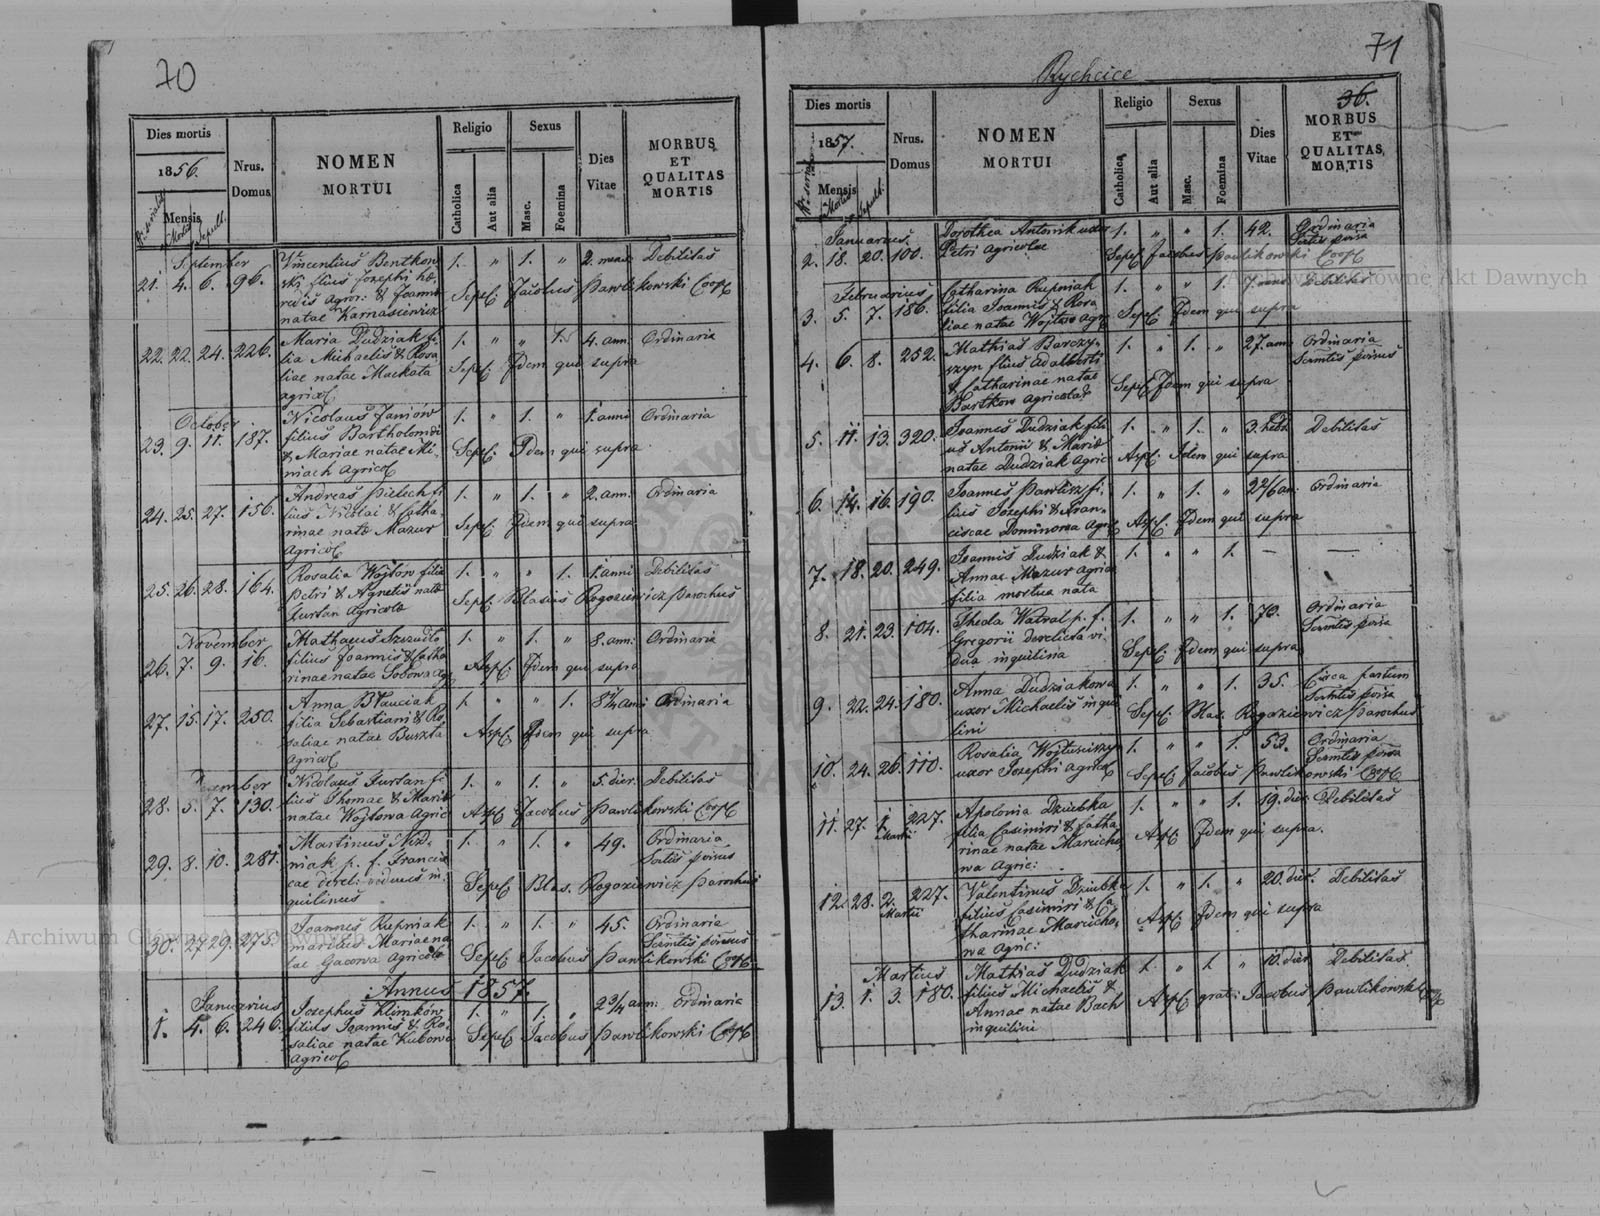 70
Dies mortis
1856.
Mensis
Nrus. Domus
NOMEN
MORTUI
Religio
Catholica
Aut alia
Sexus
Masc.
Foemina
Dies Vitae
MORBUS
ET
QUALITAS
MORTIS
September
21. 4. 6. 96. Vincentius Bentkow 1. " 1. " 2. Debilitas
ski filius Josephi hae
redis agror. & Joanna Sepel. Jacobus Pawlikowski Coop
natae Karnasiewicz
22. 22. 24. 226. Maria Dudziak fi 1. " " 1. 4. ann. Ordinaria
lia Michaelis & Rosa
liae natae Mackata Sepel. Idem qui supra
agricol
October
23. 9. 11. 187. Nicolaus Janiów 1. " 1. " 1. anni Ordinaria
filius Bartholomei
& Mariae natae Mi- Sepel. Idem qui supra
niach agricol
24. 25. 27. 156. Andreas Pielech fi 1. " 1. " 2. ann. Ordinaria
lius Nicolai & Catha
rinae natae Mazur Sepel. Idem qui supra
agricol
25. 26. 28. 164. Rosalia Wojtow filia 1. " " 1. 1. anni Debilitas
Petri & Agnetis natae Sepel. Blasius Rogoziewicz Parochus
Furtan agricola
November
26. 7. 9. 16. Mathaeus Szczudło 1. " 1. " 8. ann. Ordinaria
filius Joannis & Catha
rinae natae Sobowa agr Asp. Idem qui supra
27. 15. 17. 250. Anna Błauciak 1. " " 1. Ordinaria
filia Sebastiani & Ro
saliae natae Buszta Asp. Idem qui supra
agricol
December
28. 5. 7. 130. Nicolaus Furtan fi 1. " 1. " 5. dier. Debilitas
lius Thomae & Maria
natae Wojtowa Agric Asp. Jacobus Pawlikowski Coop
29. 8. 10. 281. Martinus Niz- 1. " 1. " 49. Ordinaria
niak p. f. Francis
cae derel. viduus in- Sepel. Blas. Rogoziewicz Parochus
quilinus
30. 27. 29. 273. Joannes Rupniak 1. " 1. " 45. Ordinaria
maritus Mariae na
tae Gacowa Agricola Sepel. Jacobus Pawlikowski Coop
Annus 1857.
Januarius
1. 4. 6. 246. Josephus Klimków 1. " 1. " 2 3/4 ann. Ordinaria
filius Joannis & Ro
saliae natae Kubowa Sepel. Jacobus Pawlikowski Coop
agricol
71
Rychcice
36.
Dies mortis
1857.
Mensis
Nrus. Domus
NOMEN
MORTUI
Religio
Catholica
Aut alia
Sexus
Masc.
Foemina
Dies Vitae
MORBUS
ET
QUALITAS
MORTIS
Januarius
2. 18. 20. 100. Dorothea Antonik uxor 1. " " 1. 42. Ordinaria
Petri agricolae Sepel. Jacobus Pawlikowski Coop
Februarius
3. 5. 7. 186. Catharina Rupniak 1. " " 1. 7 Debilitas
filia Joannis & Rosa
liae natae Wojtow agr Sepel. Idem qui supra
4. 6. 8. 252. Mathias Barczy- 1. " 1. " 27. ann Ordinaria
szyn filius Adalberti
& Catharinae natae Sepel. Idem qui supra
Bartkow agricola
5. 11. 13. 320. Joannes Dudziak fili 1. " 1. " 3. hebd Debilitas
us Antonii & Maria
natae Dudziak agric Asp. Idem qui supra
6. 14. 16. 190. Joannes Pawlisz fi- 1. " 1. " Ordinaria
lius Josephi & Fran-
ciscae Dominowa agric Asp. Idem qui supra
7. 18. 20. 249. Joannis Dudziak & 1. " " 1. — —
Annae Mazur agric
filia mortua nata
8. 21. 23. 104. Thecla Watral p. f. 1. " " 1. 70. Ordinaria
Gregorii derelicta vi
dua inquilina Sepel. Idem qui supra
9. 22. 24. 180. Anna Dudziakowa 1. " " 1. 35. Circa partum
uxor Michaelis inqui Sepel. Blas. Rogoziewicz Parochus
lini
10. 24. 26. 110. Rosalia Wojtusiszyn 1. " " 1. 53. Ordinaria
uxor Josephi agricol Sepel. Jacobus Pawlikowski Coop
11. 27. 1. Martii 227. Apolonia Dziubka 1. " " 1. 19. dier Debilitas
filia Casimiri & Catha
rinae natae Marcicho Asp. Idem qui supra.
wa agric:
12. 28. 2. Martii 227. Valentinus Dziubka 1. " 1. " 20. dier. Debilitas
filius Casimiri & Ca
tharinae Marcicho, Asp. Idem qui supra
wa agric:
Martius
13. 1. 3. 180. Mathias Dudziak 1. " 1. " 10. dier Debilitas
filius Michaelis &
Annae natae Bach Asp. grati Jacobus Pawlikowski Coop
inquilini
Archiwum Główne Akt Dawnych
Archiwum Główne Akt Dawnych